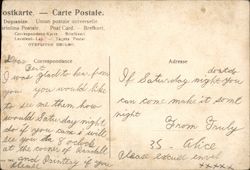 ostkarte. — Carte Postale.
Dopisnice Union postale universelle
Cartolina Postale. Post Card. — Brefkort.
Correspondenzkarte. Briefkaart
Levelező-Lap. — Tarjeta Postal
Correspondance
Adresse
Dear
Bert
I was glad to hear from
you you would like
to see me then how
would Saturday night
do if you can I will
see you at 8 o'clock
at the corner of Randall
and Printery if you
please
If Saturday night dont do You
can come make it some
night
From Truly
35 - Alice
Please excuse envel
xxxxx